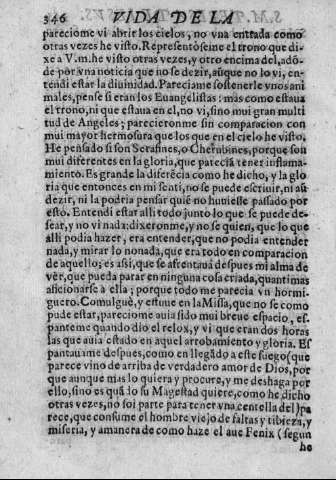 346 VIDA DE LA
pareciome vi abrir los cielos, no vna entrada como
otras vezes he visto. Representòseme el trono que di-
xe a V.m. he visto otras vezes, y otro encima del, adõ-
de por vna noticia que no se dezir, aũque no lo vi, en-
tendi estar la diuinidad. Pareciame sostenerle vnos ani
males, pense si eran los Euangelistas: mas como estaua
el trono, ni que estaua en el, no vi, sino mui gran multi
tud de Angeles; parecieronme sin comparacion con
mui mayor hermosura que los que en el cielo he visto.
He pensado si son Serafines, o Cherubines, porque son
mui diferentes en la gloria, que parecia tener inflama-
miento. Es grande la diferẽcia como he dicho, y la glo
ria que entonces en mi senti, no se puede escriuir, ni aũ
dezir, ni la podria pensar quiẽ no huuiesse passado por
esto. Entendi estar alli todo junto lo que se puede de-
sear, y no vi nada; dixeronme, y no se quien, que lo que
alli podia hazer, era entender, que no podia entender
nada, y mirar lo nonada, que era todo en comparacion
de aquello; es assi, que se afrentaua despues mi alma de
vèr, que pueda parar en ninguna cosa criada, quanti mas
aficionarse a ella; porque todo me parecia vn hormi-
guero. Comulguè, y estuue en la Missa, que no se como
pude estar, pareciome auia sido mui breue espacio, es-
panteme quando diò el relox, y vi que eran dos horas
las que auia estado en aquel arrobamiento y gloria. Es
pantauame despues, como en llegãdo a este fuego (que
parece vino de arriba de verdadero amor de Dios, por
que aunque mas lo quiera y procure, y me deshaga por
ello, sino es quãdo su Magestad quiere, como he dicho
otras vezes, no soi parte para tener vna centella del) pa
rece, que consume el hombre viejo de faltas y tibieza, y
miseria, y a manera de como haze el aue Fenix (segun
he